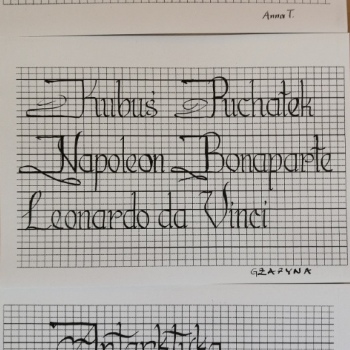 Anna T.
Kubuś Puchatek
Napoleon Bonaparte
Leonardo da Vinci
GŻAFYNA
Antarktyka